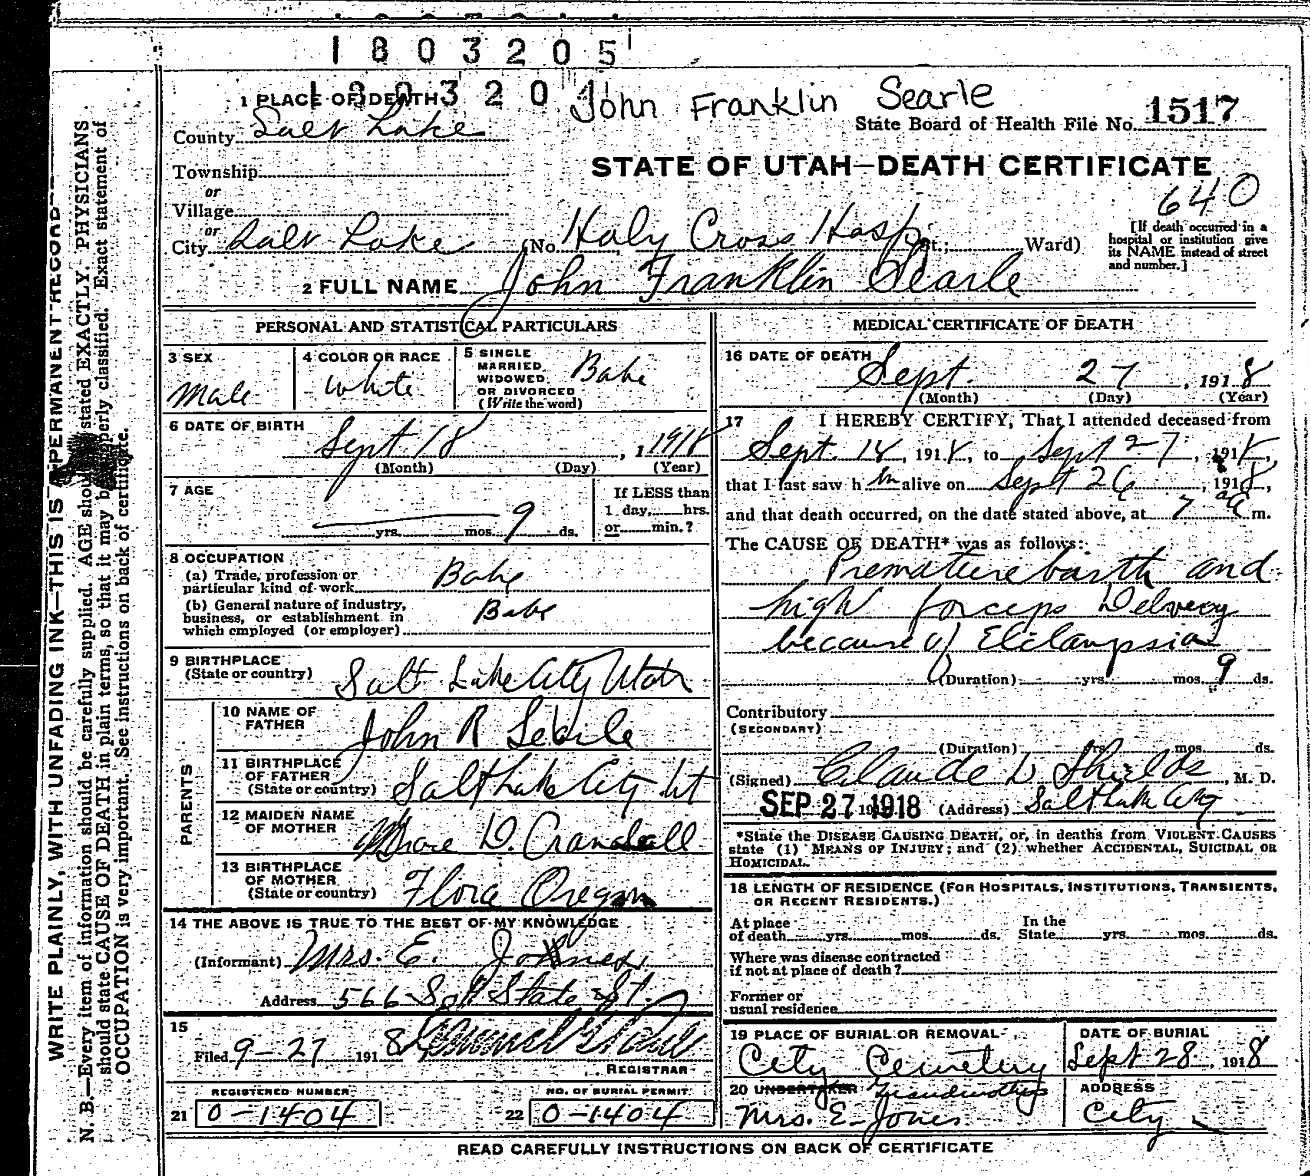 1803205
180320
John Franklin Searle
1 PLACE OF DEATH
County Salt Lake
State Board of Health File No. 1517
Township
STATE OF UTAH—DEATH CERTIFICATE
or
Village
640
or
City Salt Lake (No. Holy Cross Hosp St.; Ward)
[If death occurred in a
hospital or institution give
its NAME instead of street
and number.]
2 FULL NAME John Franklin Searle
PERSONAL AND STATISTICAL PARTICULARS
3 SEX
Male
4 COLOR OR RACE
White
5 SINGLE
MARRIED,
WIDOWED,
OR DIVORCED
(Write the word)
Babe
6 DATE OF BIRTH
Sept 18, 1918
(Month) (Day) (Year)
7 AGE
yrs. mos. 9 ds.
If LESS than
1 day, hrs.
or min.?
8 OCCUPATION
(a) Trade, profession or
particular kind of work Babe
(b) General nature of industry,
business, or establishment in
which employed (or employer) Babe
9 BIRTHPLACE
(State or country) Salt Lake City Utah
PARENTS
10 NAME OF
FATHER
John R Searle
11 BIRTHPLACE
OF FATHER
(State or country) Salt Lake City Ut
12 MAIDEN NAME
OF MOTHER
Grace D. Crandall
13 BIRTHPLACE
OF MOTHER
(State or country) Flora Oregon
14 THE ABOVE IS TRUE TO THE BEST OF MY KNOWLEDGE
(Informant) Mrs. E. Jones
Address 566 So State St.
15
Filed 9-27 1918
REGISTRAR
REGISTERED NUMBER
21 0-1404
NO. OF BURIAL PERMIT
22 0-1404
MEDICAL CERTIFICATE OF DEATH
16 DATE OF DEATH
Sept. 27, 1918
(Month) (Day) (Year)
17 I HEREBY CERTIFY, That I attended deceased from
Sept. 18, 1918, to Sept 27, 1918,
that I last saw h im alive on Sept 26, 1918,
and that death occurred, on the date stated above, at 7 a m.
The CAUSE OF DEATH* was as follows:
Premature birth and
high forceps Delivery
because of Eclampsia
(Duration) yrs. mos. 9 ds.
Contributory
(SECONDARY)
(Duration) yrs. mos. ds.
(Signed) Claude L Shields, M. D.
SEP 27 1918 (Address) Salt Lake City
*State the DISEASE CAUSING DEATH, or, in deaths from VIOLENT CAUSES
state (1) MEANS OF INJURY; and (2) whether ACCIDENTAL, SUICIDAL OR
HOMICIDAL.
18 LENGTH OF RESIDENCE (FOR HOSPITALS, INSTITUTIONS, TRANSIENTS,
OR RECENT RESIDENTS.)
At place
of death yrs. mos. ds.
In the
State yrs. mos. ds.
Where was disease contracted
if not at place of death?
Former or
usual residence
19 PLACE OF BURIAL OR REMOVAL
City Cemetery
DATE OF BURIAL
Sept 28, 1918
20 UNDERTAKER Grandmother
Mrs. E. Jones
ADDRESS
City
READ CAREFULLY INSTRUCTIONS ON BACK OF CERTIFICATE
WRITE PLAINLY, WITH UNFADING INK—THIS IS PERMANENT RECORD
N. B.—Every item of information should be carefully supplied. AGE should stated EXACTLY. PHYSICIANS
should state CAUSE OF DEATH in plain terms, so that it may be properly classified. Exact statement of
OCCUPATION is very important. See instructions on back of certificate.